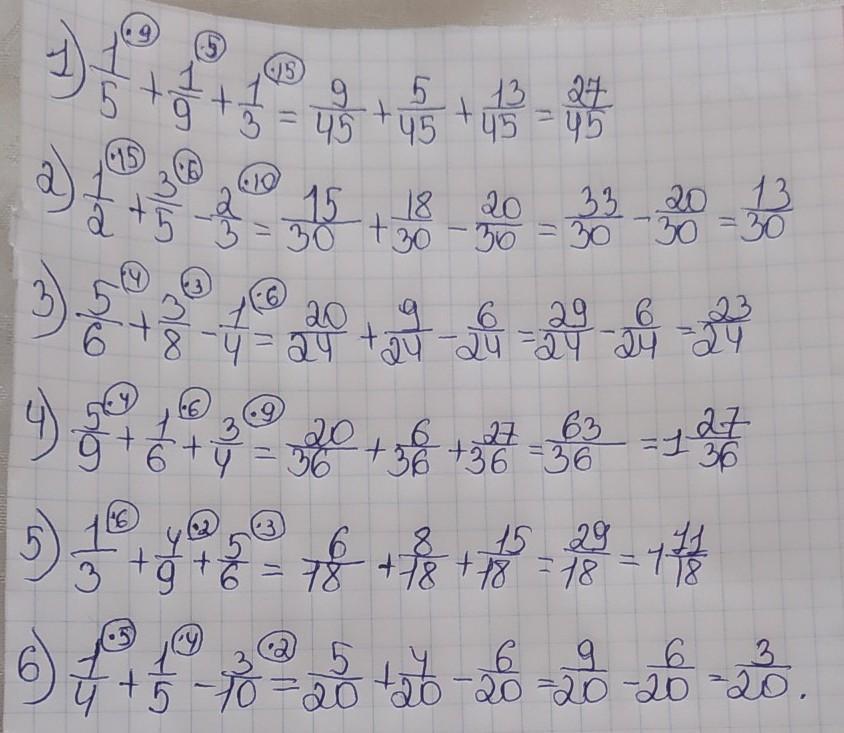 1) 1/5 (·9) + 1/9 (·5) + 1/3 (·15) = 9/45 + 5/45 + 13/45 = 27/45
2) 1/2 (·15) + 3/5 (·6) - 2/3 (·10) = 15/30 + 18/30 - 20/30 = 33/30 - 20/30 = 13/30
3) 5/6 (·4) + 3/8 (·3) - 1/4 (·6) = 20/24 + 9/24 - 6/24 = 29/24 - 6/24 = 23/24
4) 5/9 (·4) + 1/6 (·6) + 3/4 (·9) = 20/36 + 6/36 + 27/36 = 63/36 = 1 27/36
5) 1/3 (·6) + 4/9 (·2) + 5/6 (·3) = 6/18 + 8/18 + 15/18 = 29/18 = 1 11/18
6) 1/4 (·5) + 1/5 (·4) - 3/10 (·2) = 5/20 + 4/20 - 6/20 = 9/20 - 6/20 = 3/20.